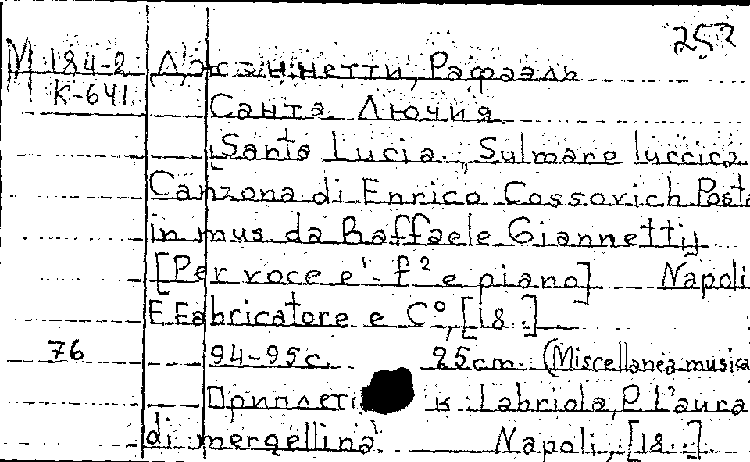 253
М 184-2 Джаннетти, Рафаэль
К-641
Санта Лючия
[Santa Lucia. Sul mare luccica
Canzona di Enrico Cossovich Posta
in mus da Raffaele Giannetti]
[Per voce e f² e piano] Napoli
F. Fabricatore e C°, [18..]
76 94-95 с. 25 cm. (Miscellanea musica
к Labriola, P. L'aura
di mergellina Napoli, [18..]